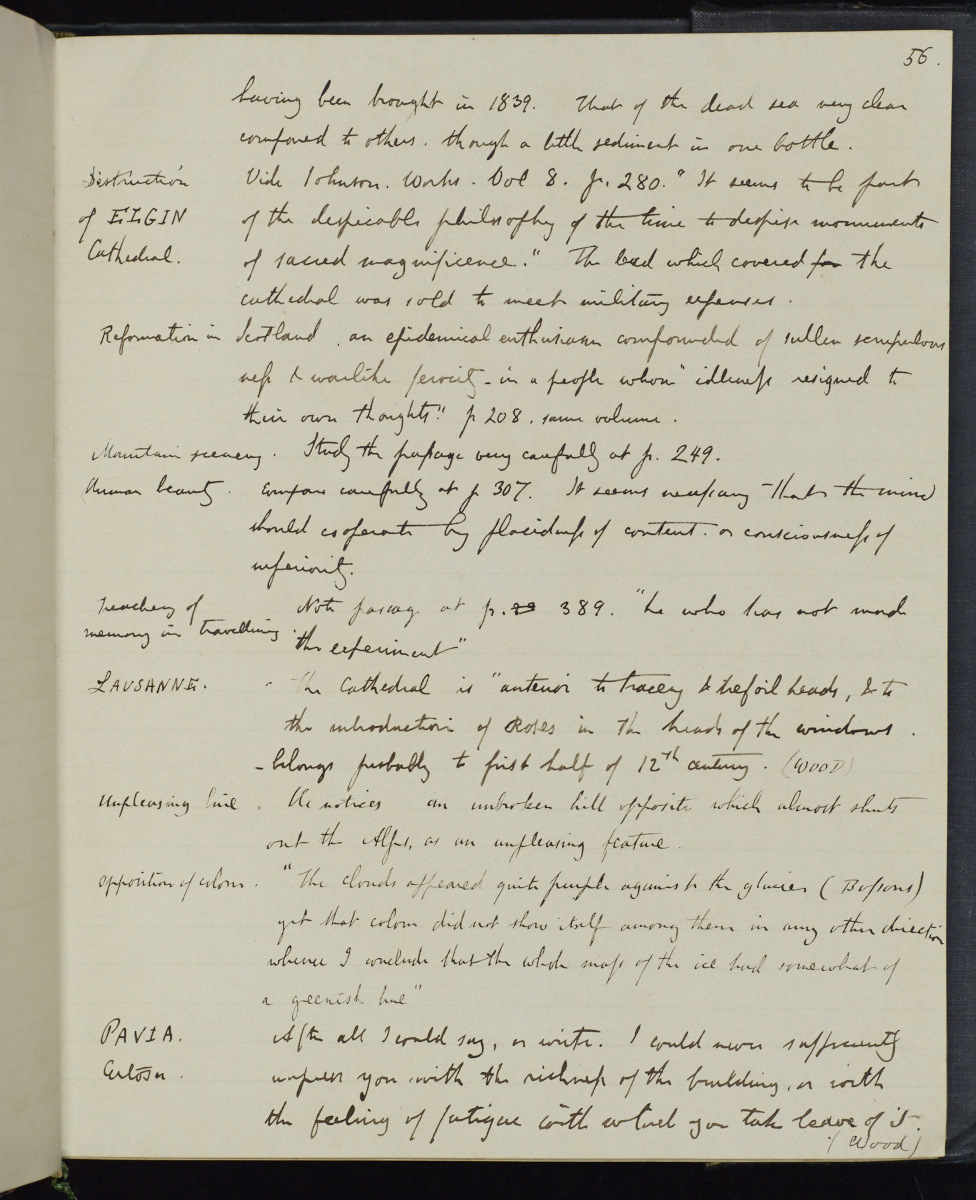 56.
having been brought in 1839. That of the dead sea very clear
compared to others. though a little sediment in one bottle.
Destruction Vide Johnson. Works. Vol 8. p. 280. "It seems to be part
of ELGIN of the despicable philosophy of the time to despise monuments
Cathedral. of sacred magnificence." The lead which covered for the
cathedral was sold to meet military expenses.
Reformation in Scotland, an epidemical enthusiasm compounded of sullen scrupulous
ness & warlike ferocity - in a people whom "idleness resigned to
their own thoughts." p 208. same volume.
Mountain scenery. Study the passage very carefully at p. 249.
Human beauty. compare carefully at p 307. It seems necessary that the mind
should cooperate by placidness of content. or consciousness of
inferiority.
Treachery of Note passage at p. 389. "he who has not made
memory in travelling. the experiment"
LAUSANNE. - The Cathedral is "anterior to tracery & trefoil heads, & to
the introduction of Roses in the heads of the windows.
- belongs probably to first half of 12th century. (WOOD)
Unpleasing line. He notices an unbroken hill opposite which almost shuts
out the Alps, as an unpleasing feature.
Opposition of colour. "The clouds appeared quite purple against the glacier (Bossons)
yet that colour did not show itself among them in any other direction
whence I conclude that the whole mass of the ice had somewhat of
a greenish hue"
PAVIA. After all I could say, or write. I could never sufficiently
Certosa. impress you with the richness of the building, or with
the feeling of fatigue with which you take leave of it.
(Wood)